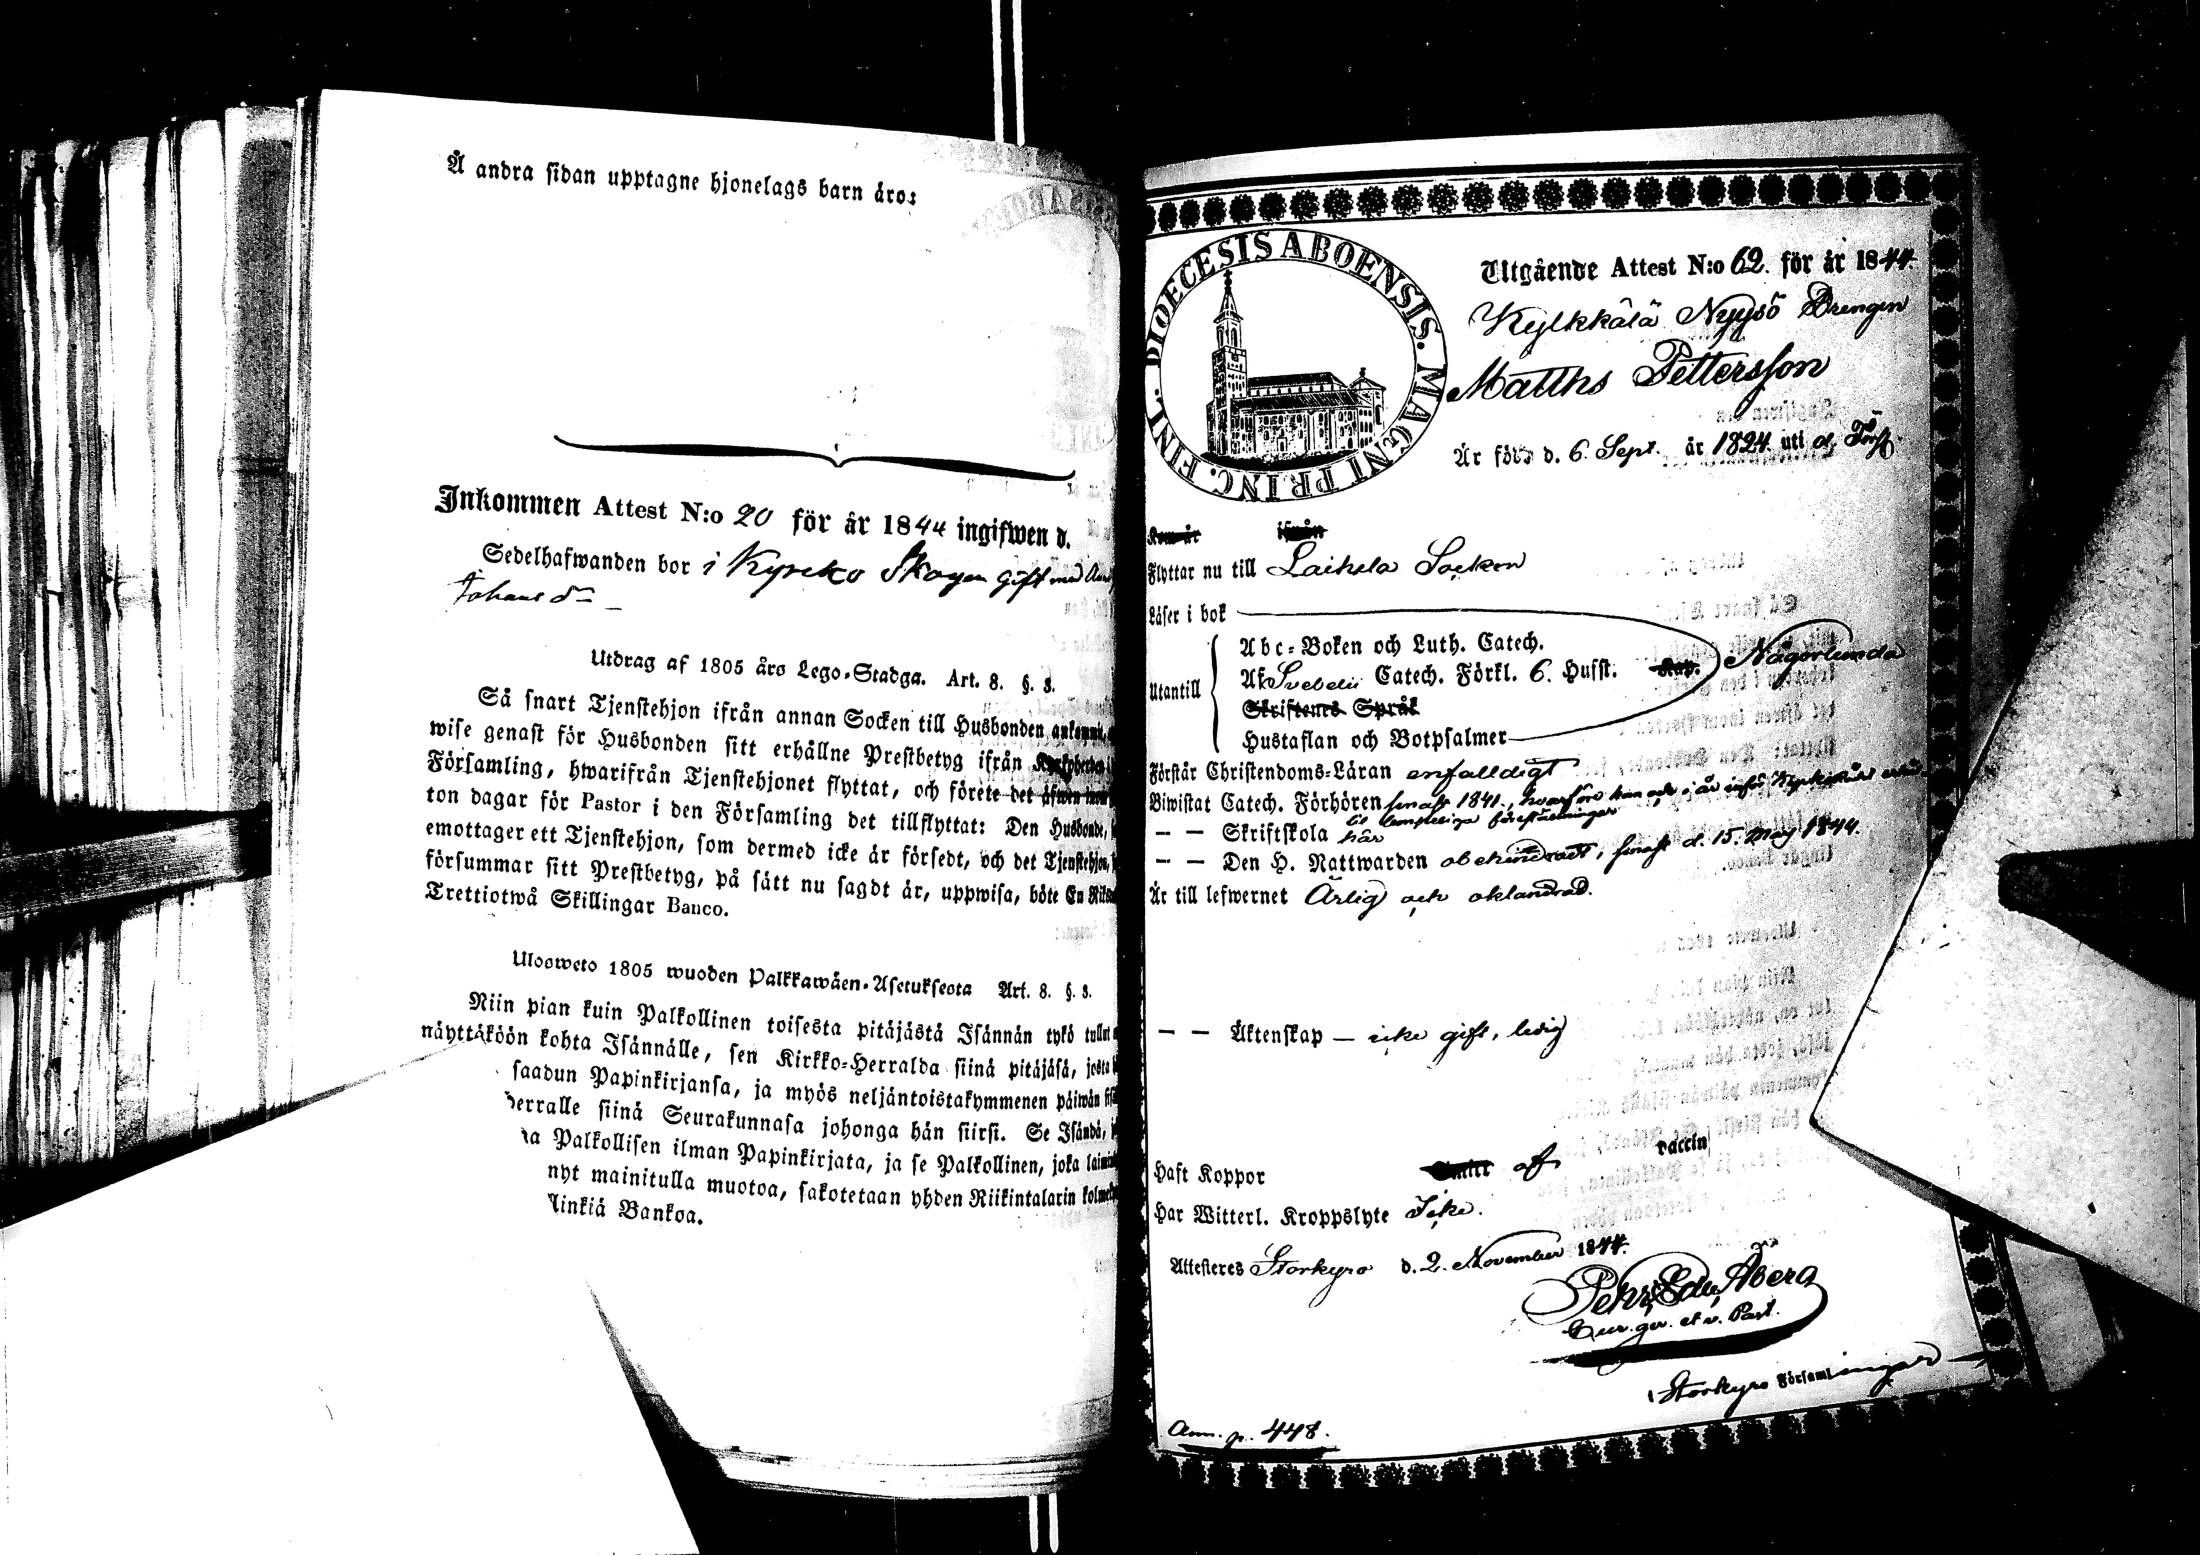 Å andra sidan upptagne hjonelags barn äro:
Inkommen Attest N:o 20 för år 1844 ingifwen d.
Sedelhafwanden bor i Kyrcko Skogen gift med
Utdrag af 1805 års Lego-Stadga. Art. 8. §. 3.
Så snart Tjenstehjon ifrån annan Socken till Husbonden ankommit,
wise genast för Husbonden sitt erhållne Prestbetyg ifrån Kyrkoherden i
Församling, hwarifrån Tjenstehjonet flyttat, och förete det äfwen inom
ton dagar för Pastor i den Församling det tillflyttat: Den Husbonde,
emottager ett Tjenstehjon, som dermed icke är försedt, och det Tjenstehjon,
försummar sitt Prestbetyg, på sätt nu sagdt är, uppwisa, böte En
Trettiotwå Skillingar Banco.
Ulosweto 1805 wuoden Palkkawäen-Asetuksesta Art. 8. §. 3.
Niin pian kuin Palkollinen toisesta pitäjästä Isännän tykö tullut
näyttäköön kohta Isännälle, sen Kirkko-Herralda siinä pitäjäsä, josta
saadun Papinkirjansa, ja myös neljäntoistakymmenen päiwän
herralle siinä Seurakunnasa johonga hän siirsi. Se Isändä,
Palkollisen ilman Papinkirjata, ja se Palkollinen, joka
nyt mainitulla muotoa, sakotetaan yhden Riikintalarin
linkiä Bankoa.
FINL. DIOECESIS ABOENSIS. MAGNI PRINC.
Utgående Attest N:o 62. för år 1844.
Kylkkälä Nyysö Drengen
Matths Pettersson
Är född d. 6. Sept. år 1824. uti d.
Kom år ifrån
Flyttar nu till Laihela Socken
Läser i bok
Abc-Boken och Luth. Catech.
Utantill Af Svebelii Catech. Förkl. 6. Hufst. Kap. Någorlunda
Skriftens Språk
Hustaflan och Botpsalmer
Förstår Christendoms-Läran enfalldigt
Biwistat Catech. Förhören senast 1841., hvarföre han ock i år inför Kyrkorådet
till lämpeliga föreställningar
— — Skriftskola här
— — Den H. Nattwarden obehindradt, senast d. 15. Maj 1844.
Är till lefwernet Ärlig och oklandrad.
— — Äktenskap — icke gift, ledig
Haft Koppor af vaccin
Har Witterl. Kroppslyte Icke.
Attesteres Storkyro d. 2. November 1844.
Pehr Edv. Åberg
Cur. ger. et v. Past.
i Storkyro Församlingar
Ann. p. 448.